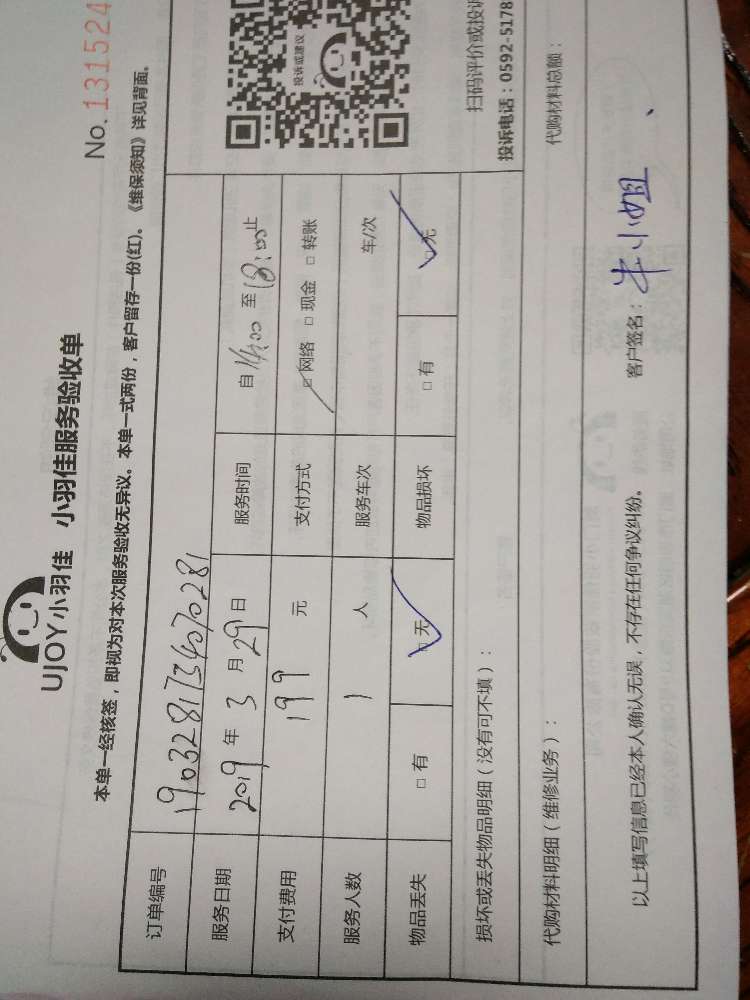 UJOY小羽佳 小羽佳服务验收单
No.131524
本单一经核签，即视为对本次服务验收无异议。本单一式两份，客户留存一份(红)。《维保须知》详见背面。
订单编号 1903281734070281
服务日期 2019 年 3 月 29 日 服务时间 自 14:00 至 18:00 止
支付费用 199 元 支付方式 □ 网络 □ 现金 □ 转账
服务人数 1 人 服务车次 车/次
物品丢失 □ 有 □ 无 物品损坏 □ 有 □ 无
投诉或建议
扫码评价或投诉
投诉电话：0592-5178
损坏或丢失物品明细（没有可不填）：
代购材料明细（维修业务）： 代购材料总额：
以上填写信息已经本人确认无误，不存在任何争议纠纷。 客户签名：牛小姐